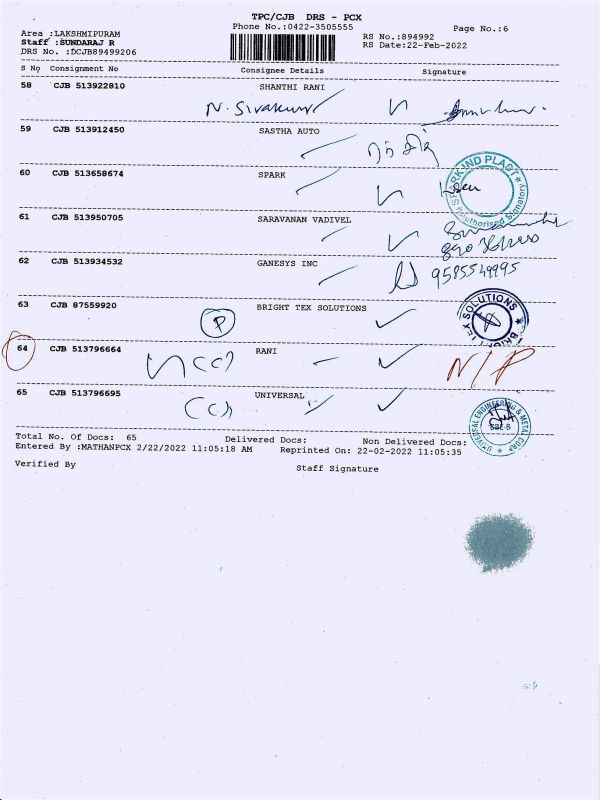 TPC/CJB DRS - PCX
Phone No.:0422-3505555
Page No.:6
Area :LAKSHMIPURAM
Staff :SUNDARAJ R
DRS No. :DCJB89499206
RS No.:894992
RS Date:22-Feb-2022
S No Consignment No Consignee Details Signature
58 CJB 513922810 SHANTHI RANI
N. Sivakumar
59 CJB 513912450 SASTHA AUTO
60 CJB 513658674 SPARK
SPARK IND PLAST
Authorised Signatory
61 CJB 513950705 SARAVANAN VADIVEL
62 CJB 513934532 GANESYS INC
9585549995
63 CJB 87559920 BRIGHT TEX SOLUTIONS
P
BRIGHT TEX SOLUTIONS
64 CJB 513796664 RANI
(C)
N/P
65 CJB 513796695 UNIVERSAL
(C)
UNIVERSAL ENGINEERING & METAL CORP
CBE-8
Total No. Of Docs: 65 Delivered Docs: Non Delivered Docs:
Entered By :MATHANPCX 2/22/2022 11:05:18 AM Reprinted On: 22-02-2022 11:05:35
Verified By Staff Signature